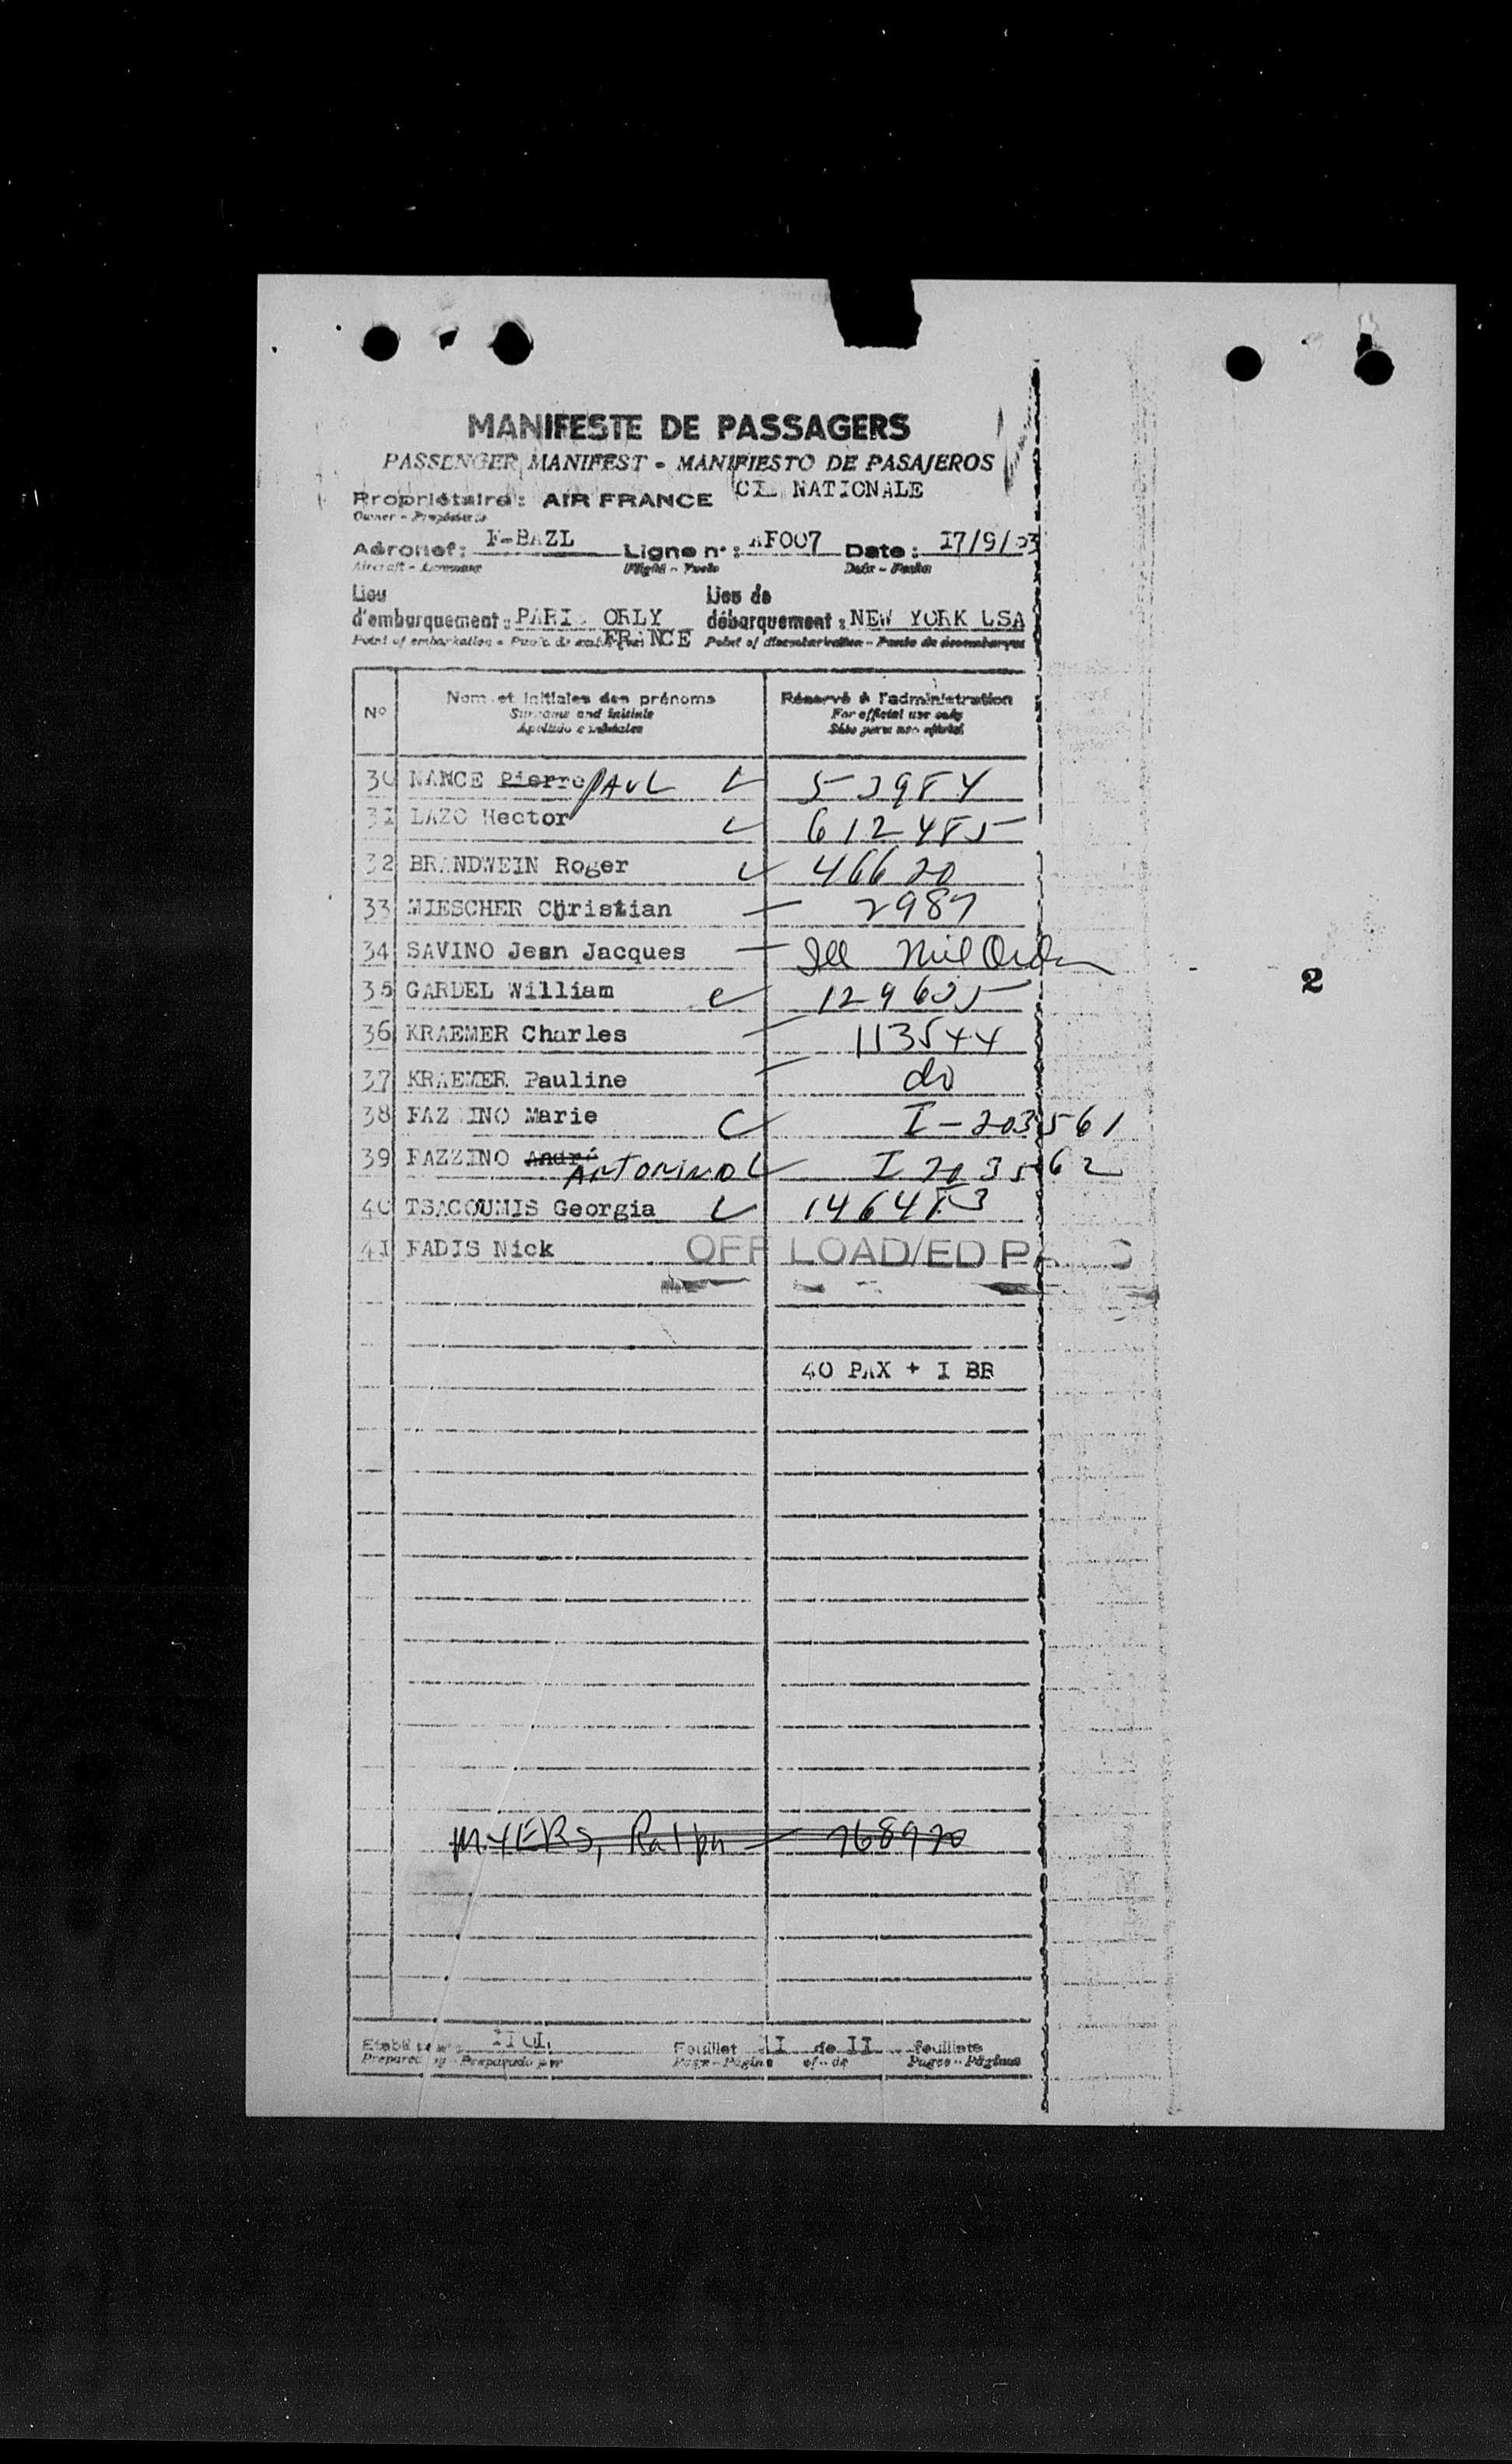 MANIFESTE DE PASSAGERS
PASSENGER MANIFEST - MANIFIESTO DE PASAJEROS
Propriétaire: AIR FRANCE CIE NATIONALE
Owner - Propietario
Aéronef: F-BAZL Ligne n°: AF007 Date: I7/9/53
Aircraft - Aeronave Flight - Vuelo Date - Fecha
Lieu d'embarquement: PARIS ORLY FRANCE Lieu de débarquement: NEW YORK USA
Point of embarkation - Punto de Point of disembarkation - Punto de
N° Nom et initiales des prénoms Réservé à l'administration
Surname and initials For official use only
Apellido e iniciales Sólo para uso oficial
30 NANCE Pierre PAUL 53984
3I LAZO Hector 612485
32 BRANDWEIN Roger 46620
33 MIESCHER Christian 2987
34 SAVINO Jean Jacques Mil Order
35 GARDEL William 129635
36 KRAEMER Charles 113544
37 KRAEMER Pauline do
38 FAZZINO Marie I-203561
39 FAZZINO André ANTONINO I 203562
40 TSACOUMIS Georgia 146483
4I FADIS Nick OFF LOAD/ED PAXS
40 PAX + I BB
MYERS, Ralph 768970
2
Etabli par: Feuillet II de II feuillets
Prepared by - Preparado por Page - Página of - de Pages - Páginas